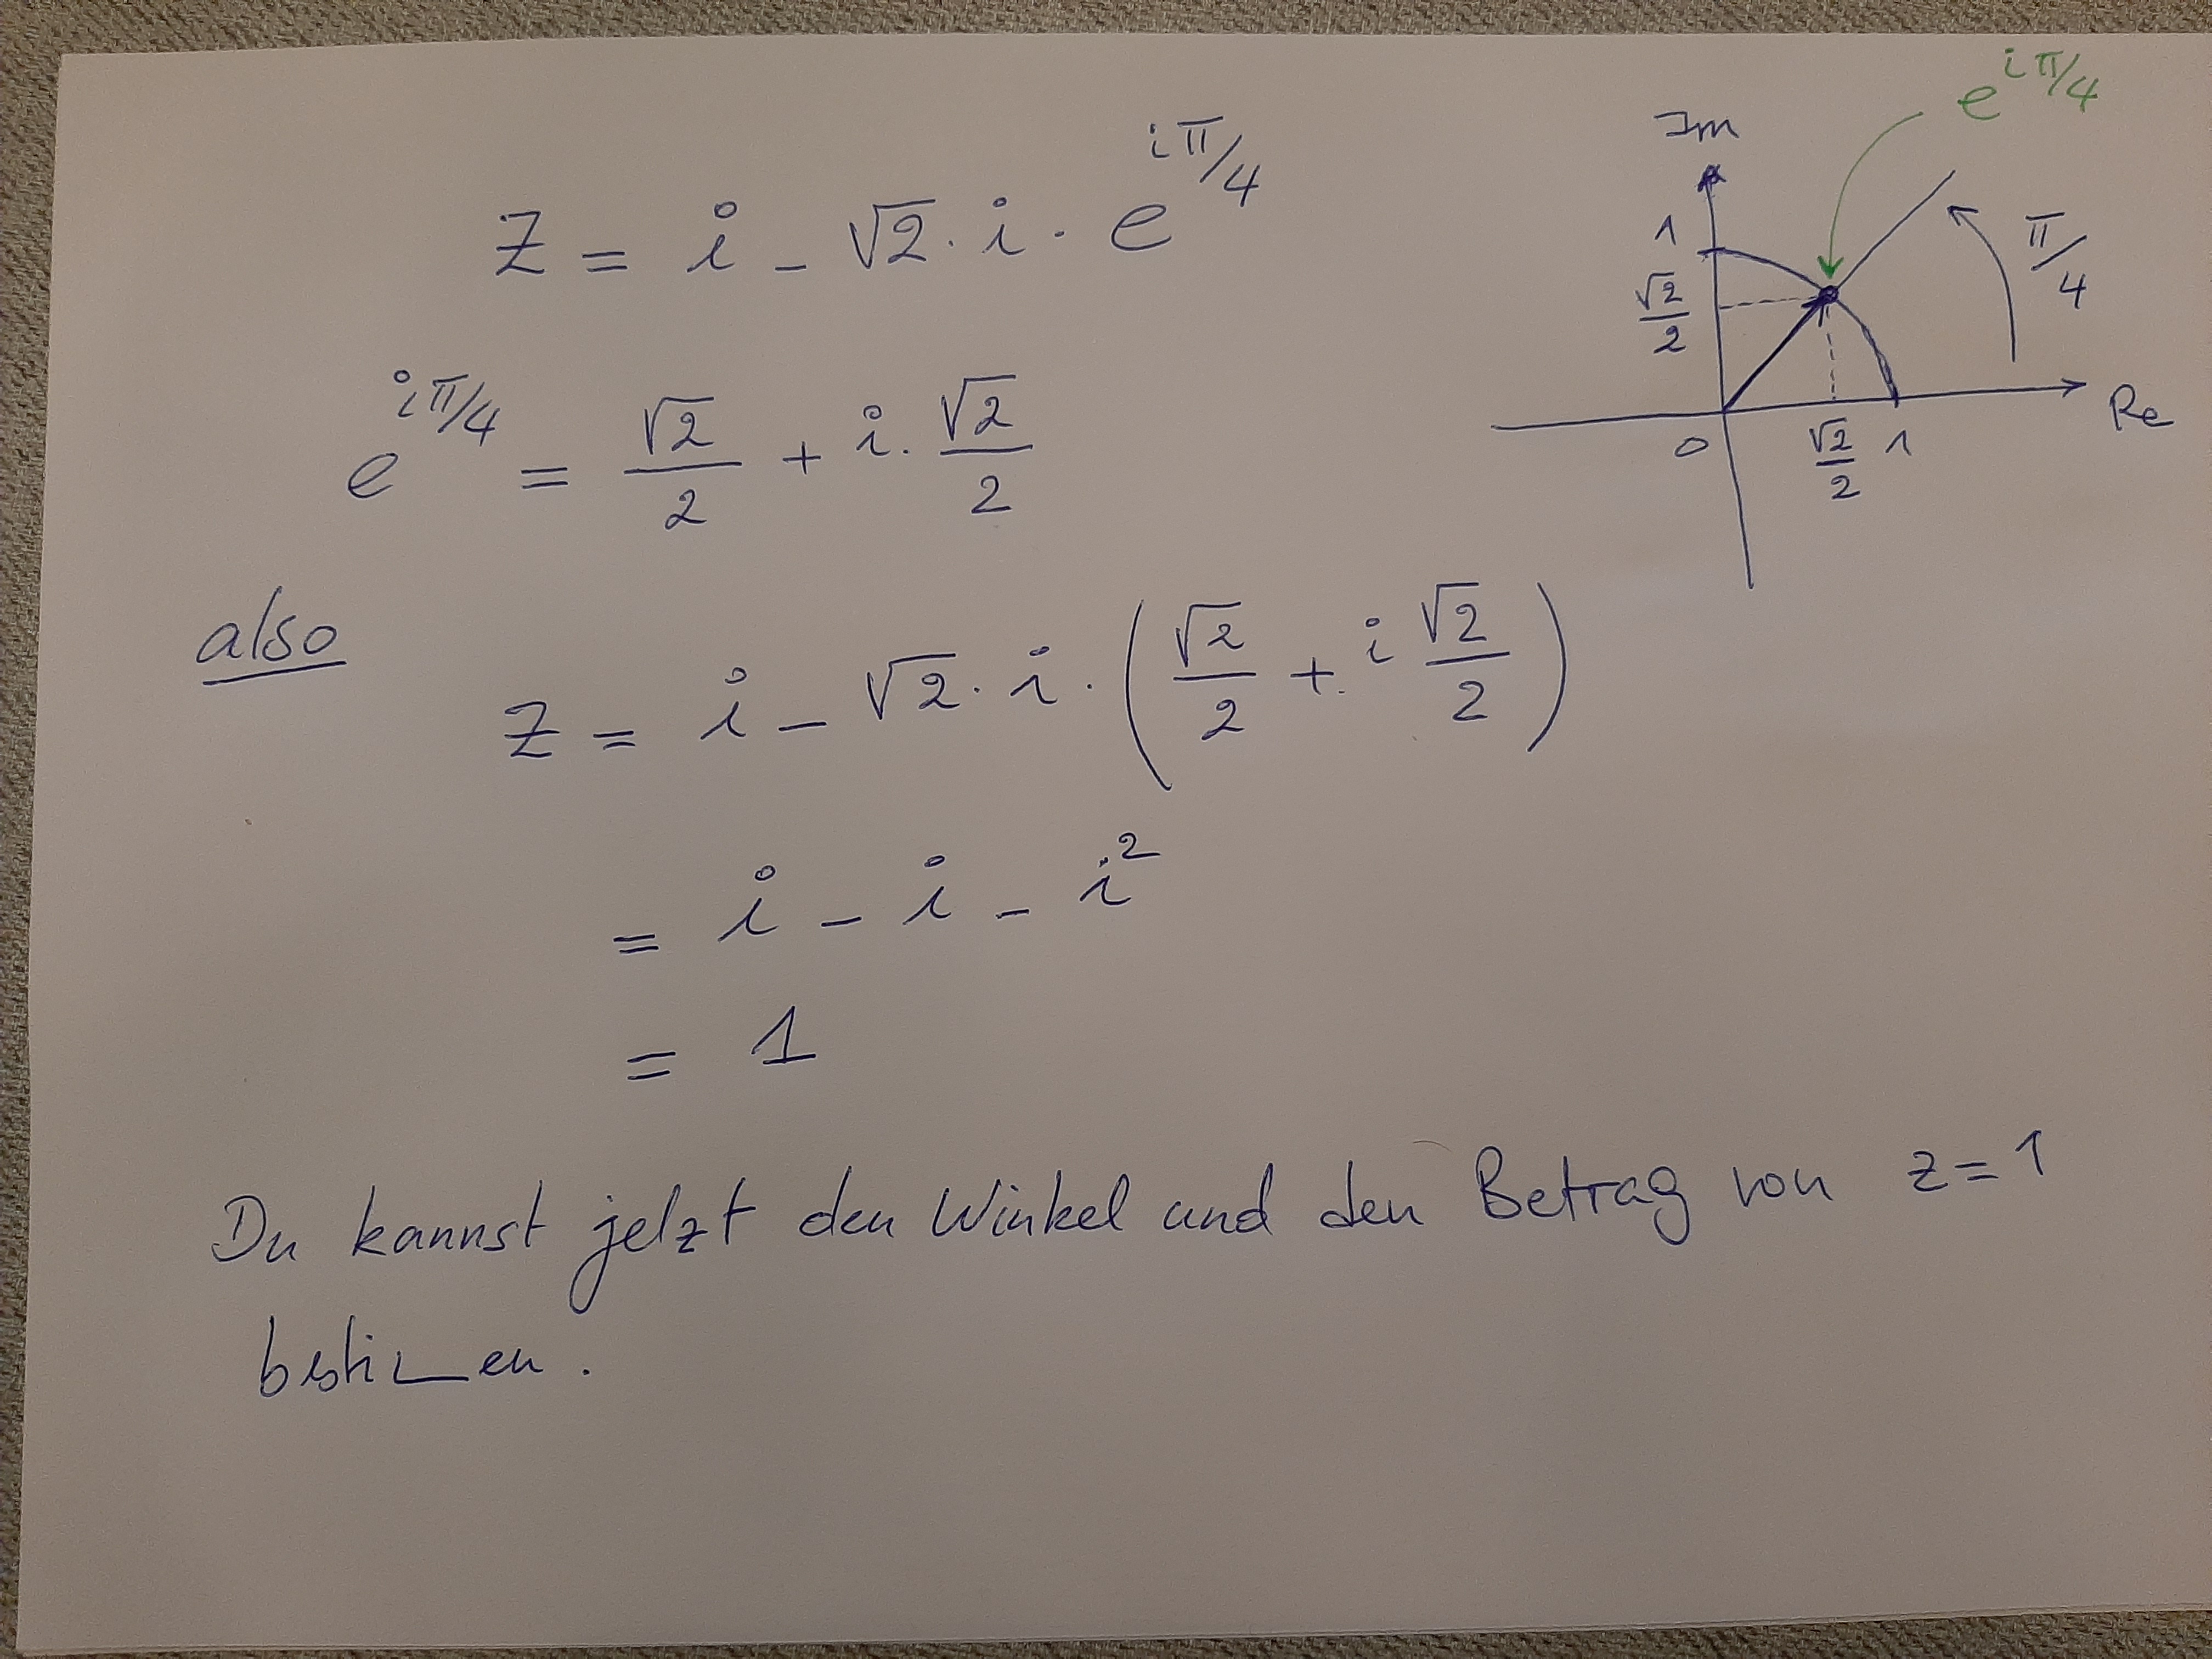 z = i - √2 · i · e^{iπ/4}
e^{iπ/4} = √2/2 + i · √2/2
also
z = i - √2 · i · (√2/2 + i √2/2)
= i - i - i²
= 1
Du kannst jetzt den Winkel und den Betrag von z = 1
bestimmen.
e^{iπ/4}
Im
1
√2/2
π/4
Re
0
√2/2
1